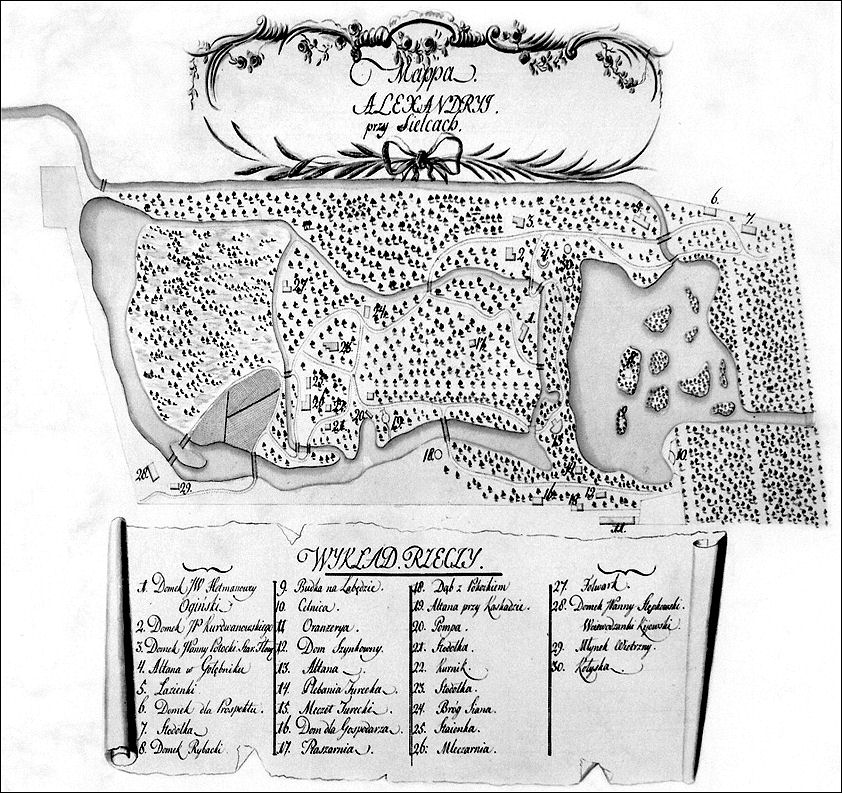 Mappa.
ALEXANDRYI.
przy Sielcach.
6.
7.
3.
2.
27.
24.
1.
17.
23.
25.
26.
22.
21.
20.
19.
18.
15.
14.
10.
16.
13.
12.
11.
28.
29.
WYKŁAD RZECZY.
1. Domek JW Hetmanowy
Ogiński
2. Domek JP Kurdwanowskiego
3. Domek Panny Potocki
4. Altana w Gołębniku
5. Łazienki
6. Domek dla Prospektu.
7. Stodołka
8. Domek Rybacki
9. Budka na Łabędzie.
10. Celnica.
11. Oranzerya.
12. Dom Szynkowny.
13. Altana
14. Plebania Turecka.
15. Meczet Turecki.
16. Dom dla Gospodarza.
17. Ptaszarnia.
18. Dąb z Pokoikiem
19. Altana przy Kaskadzie.
20. Pompa.
21. Stodołka.
22. Kurnik.
23. Stodołka.
24. Bróg Siana.
25. Staienka.
26: Mleczarnia.
27. Folwark.
28. Domek Panny Stępkowski.
Woiewodzanki Kijowski.
29. Młynek Wietrzny.
30. Kołyska.